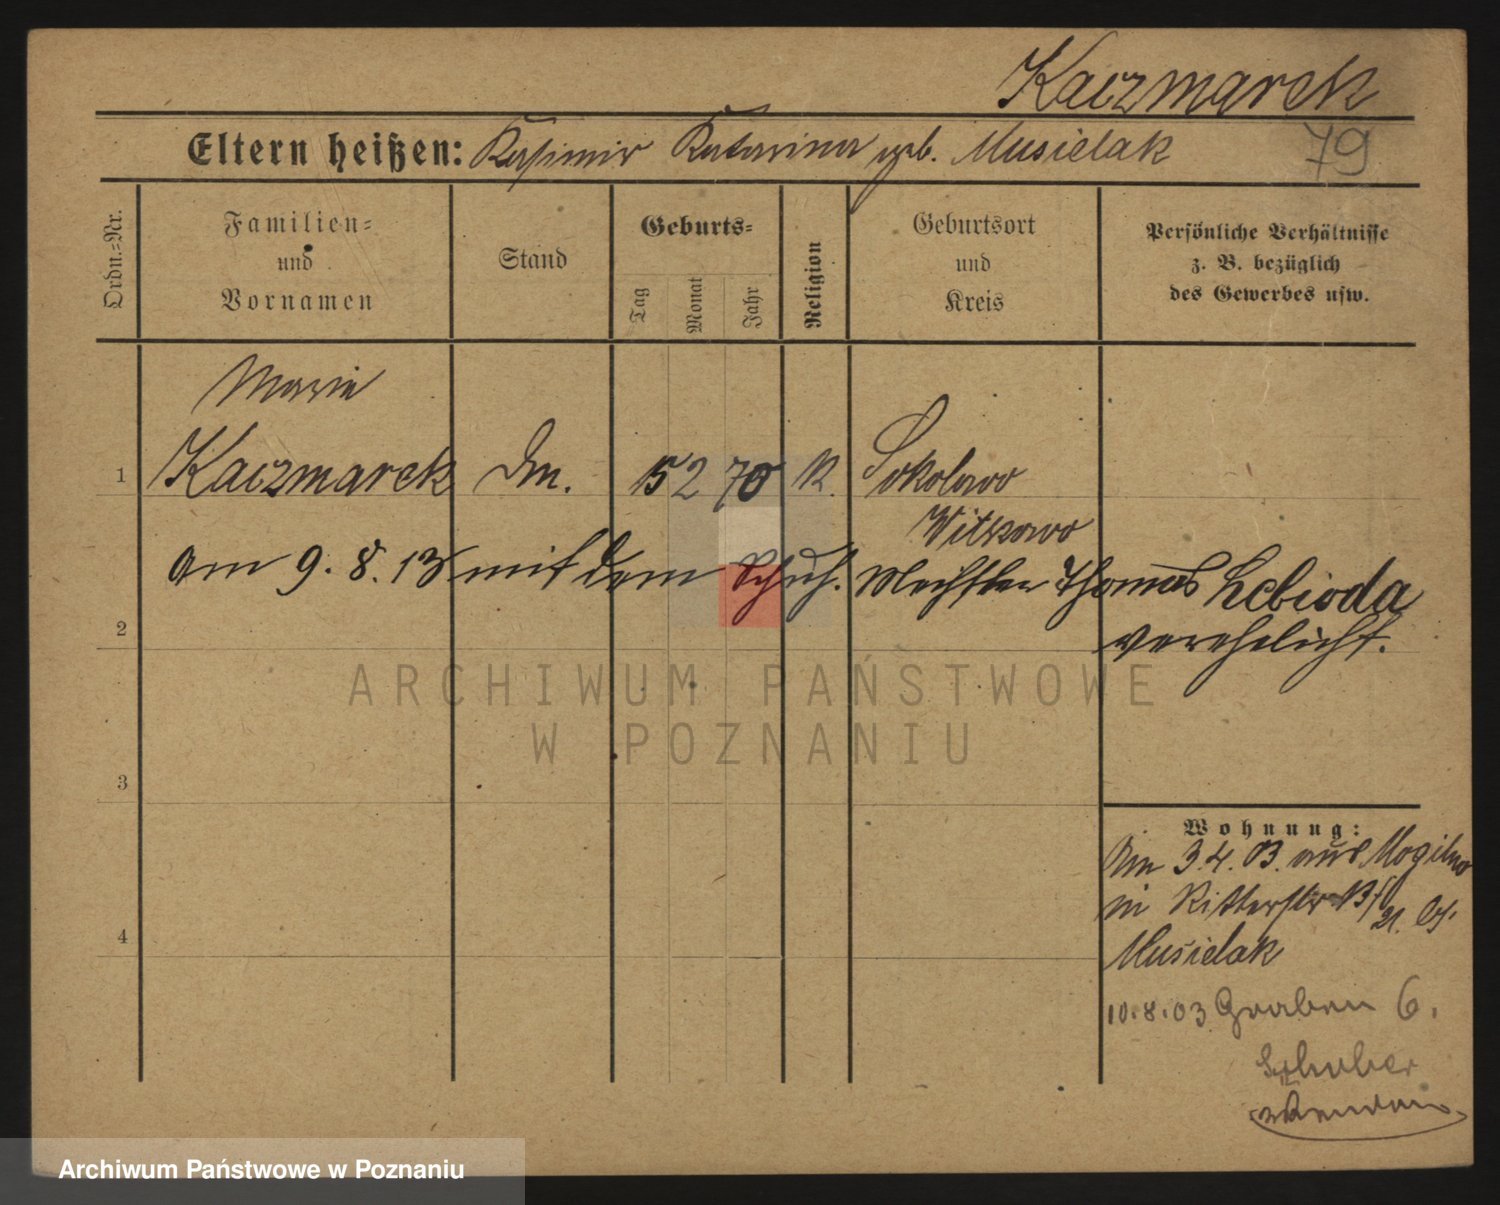 Kaczmarek
79
Eltern heißen: Kasimir Katarina geb. Musielak
Ordn.-Nr.
Familien- und Vornamen
Stand
Geburts-
Tag
Monat
Jahr
Religion
Geburtsort und Kreis
Persönliche Verhältnisse z. B. bezüglich des Gewerbes usw.
Marie
1 Kaczmarek Dm. 15 2 70 K. Sokolowo
Witkowo
am 9. 8. 13 mit dem Schuh. Thomas Lebioda
verehelicht.
2
3
4
Wohnung:
Am 3.4.03. aus Mogilno
in Ritterstr. 13/
21. bei
Musielak
10.8.03 Graben 6.
Schober
ARCHIWUM PAŃSTWOWE
W POZNANIU
Archiwum Państwowe w Poznaniu